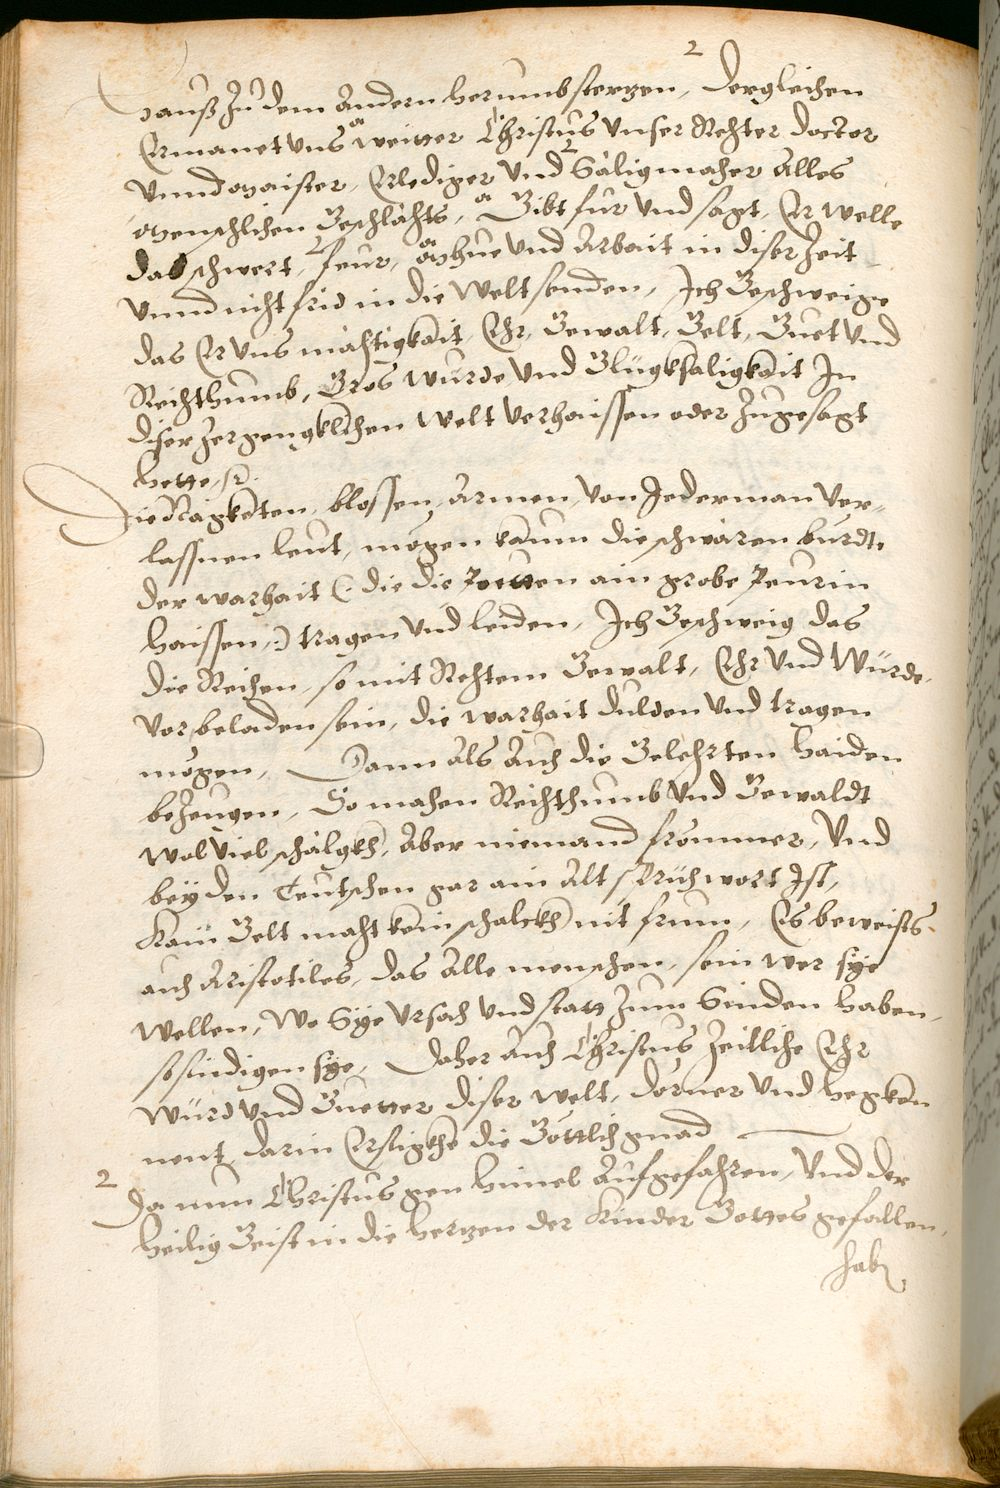 2
hauß zu dem andern herumb sterzen, dergleichen
Ermanet vns weitter Christus vnser Rechter doctor
vnnd maister, Erlediger vnd Säligmacher alles
menschlichen Geschlächts, Gibt für vnd sagt, Er welle
das schwert, feur, Mhue vnd Arbait in diser Zeit
vnnd nicht frid in die Welt senden, Ich Geschweige
das Er vns mächtigkait, Ehr, Gewalt, Gelt, Guet vnd
Reichthumb, Gros würde vnd Glügksäligkait In
diser zergengklichen Welt verhaissen oder zugesagt
hette, etc.
Die Nagketen, blossen, Armen, von Jederman ver-
lassnen leut, mögen kaum die schwären burdt,
der warhait (: die die Poetten ain grobe Peurin
haissen, :) tragen vnd leiden, Ich Geschweig das
die Reichen, so mit Rechtem Gewalt, Ehr vnd Würde,
vorbeladen sein, die warhait dulden vnd tragen
mögen, Dann als auch die Gelehrten Haiden
bezeugen, So machen Reichthumb vnd Gewaldt
wol viel schälgkh, aber niemand frommer, Vnd
bey den Teutschen gar ain alt sprüchwort Ist,
Kain Gelt macht kein schalckh nit frum, Es beweists
auch Aristotiles, das Alle menschen, sein wer sye
wellen, Wo Sye vrsach vnd statt zum Sünden haben,
so sündigen sye, Daher auch Christus Zeitliche Ehr
Würd vnd Guetter diser welt, dorner vnd hegken
nent, darin Erstigkhe die Göttlich gnad
2 Da nun Christus gen himel Aufgefahren, Vnd der
heilig Geist in die hertzen der Kinder Gottes gefallen,
hab